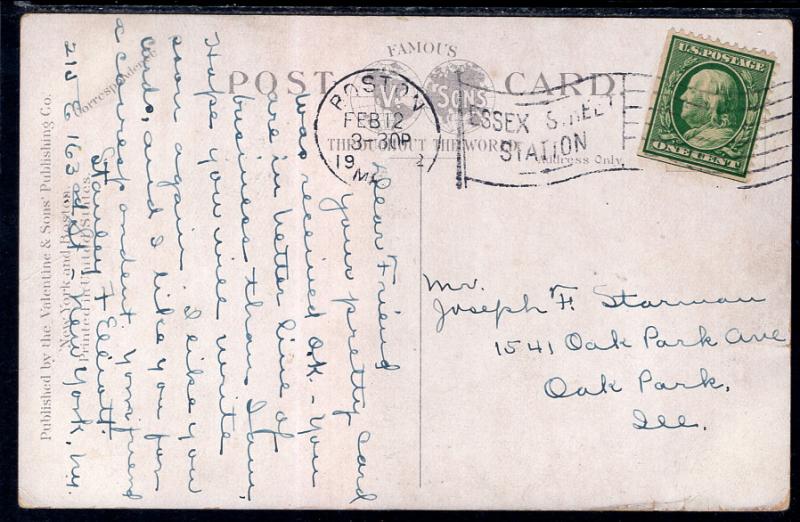 FAMOUS
POST CARD.
V. & SONS
THROUGHOUT THE WORLD
Address Only.
Correspondence
BOSTON
FEB 12
3-30P
19 2
ESSEX STREET
STATION
U.S. POSTAGE
ONE CENT
Mr.
Joseph F. Starman
1541 Oak Park Ave
Oak Park,
Ill.
Dear Friend
your pretty card
was received O.K. - You
are in better line of
business than I am,
Hope you will write
soon again. I like you
cards, and I like you for
a correspondent. Your friend
Stanley F Elliott.
215 E 163rd St - New York, N.Y.
Published by the Valentine & Sons' Publishing Co.
New York and Boston.
Printed in United States.